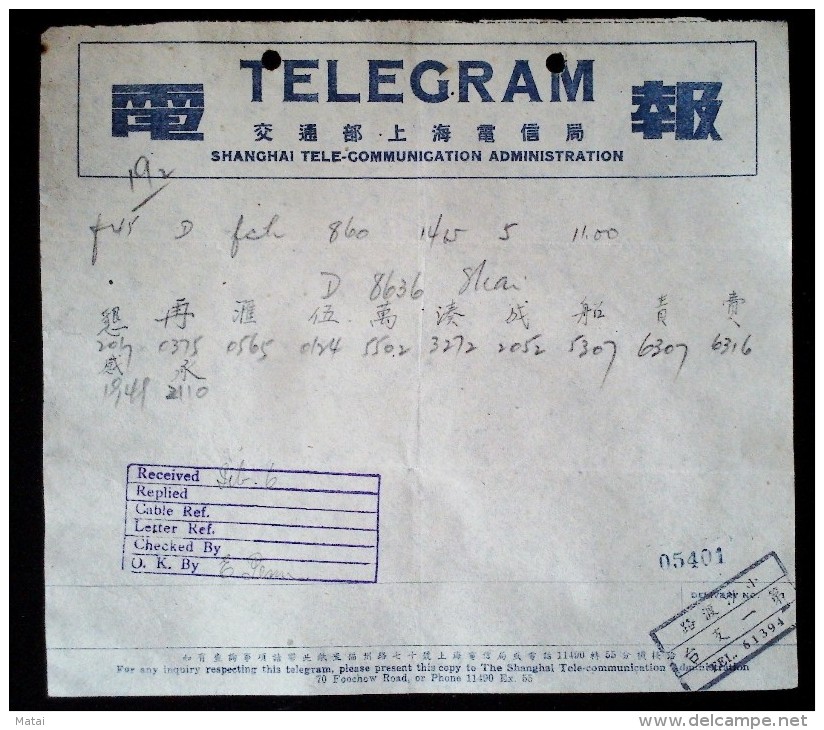 電 TELEGRAM 報
交通部上海電信局
SHANGHAI TELE-COMMUNICATION ADMINISTRATION
192
D 860 1415 5 11.00
D 8636 Shai
懇 再 滙 伍 萬 湊 成 船 責 費
0375 0565 0124 5502 3272 2052 5307 6307 6316
感 永
2110
Received Feb. 6
Replied
Cable Ref.
Letter Ref.
Checked By
O. K. By
05401
DELIVERY No.
小沙渡路
第一支台
TEL. 61394
如有查詢事項請帶此紙至福州路七十號上海電信局或電話11490轉55分機接洽
For any inquiry respecting this telegram, please present this copy to The Shanghai Tele-communication Administration
70 Foochow Road, or Phone 11490 Ex. 55
Matai
delcampe.net